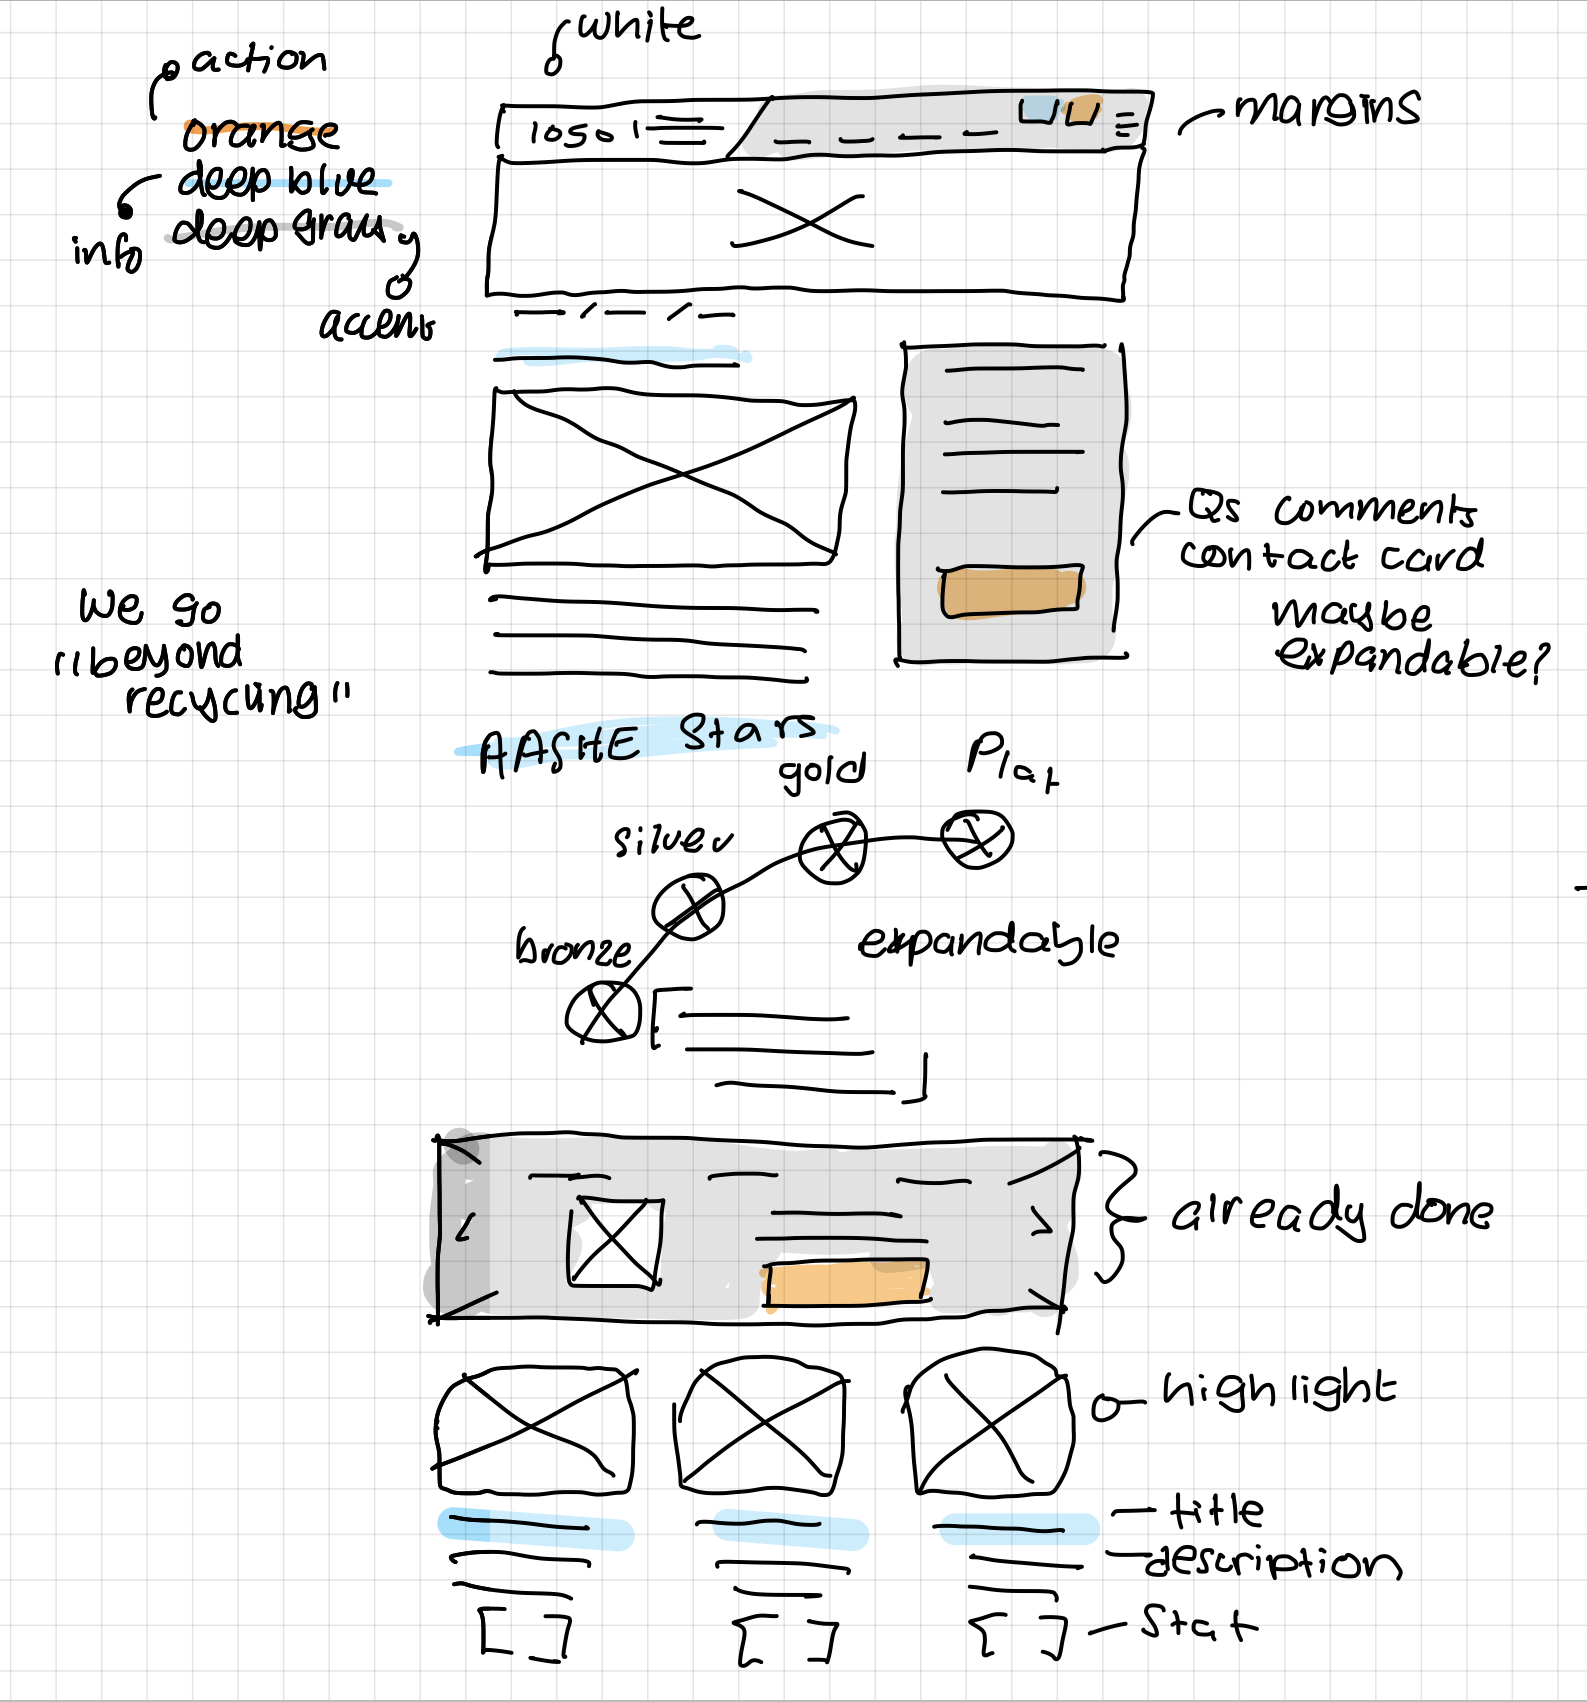 white
action
orange
deep blue
deep gray
info
accent
margins
1050
Qs comments
contact card
maybe
expandable?
We go
"beyond
recycling"
AASHE Stars
gold
Plat
silver
bronze
expandable
already done
highlight
title
description
Stat